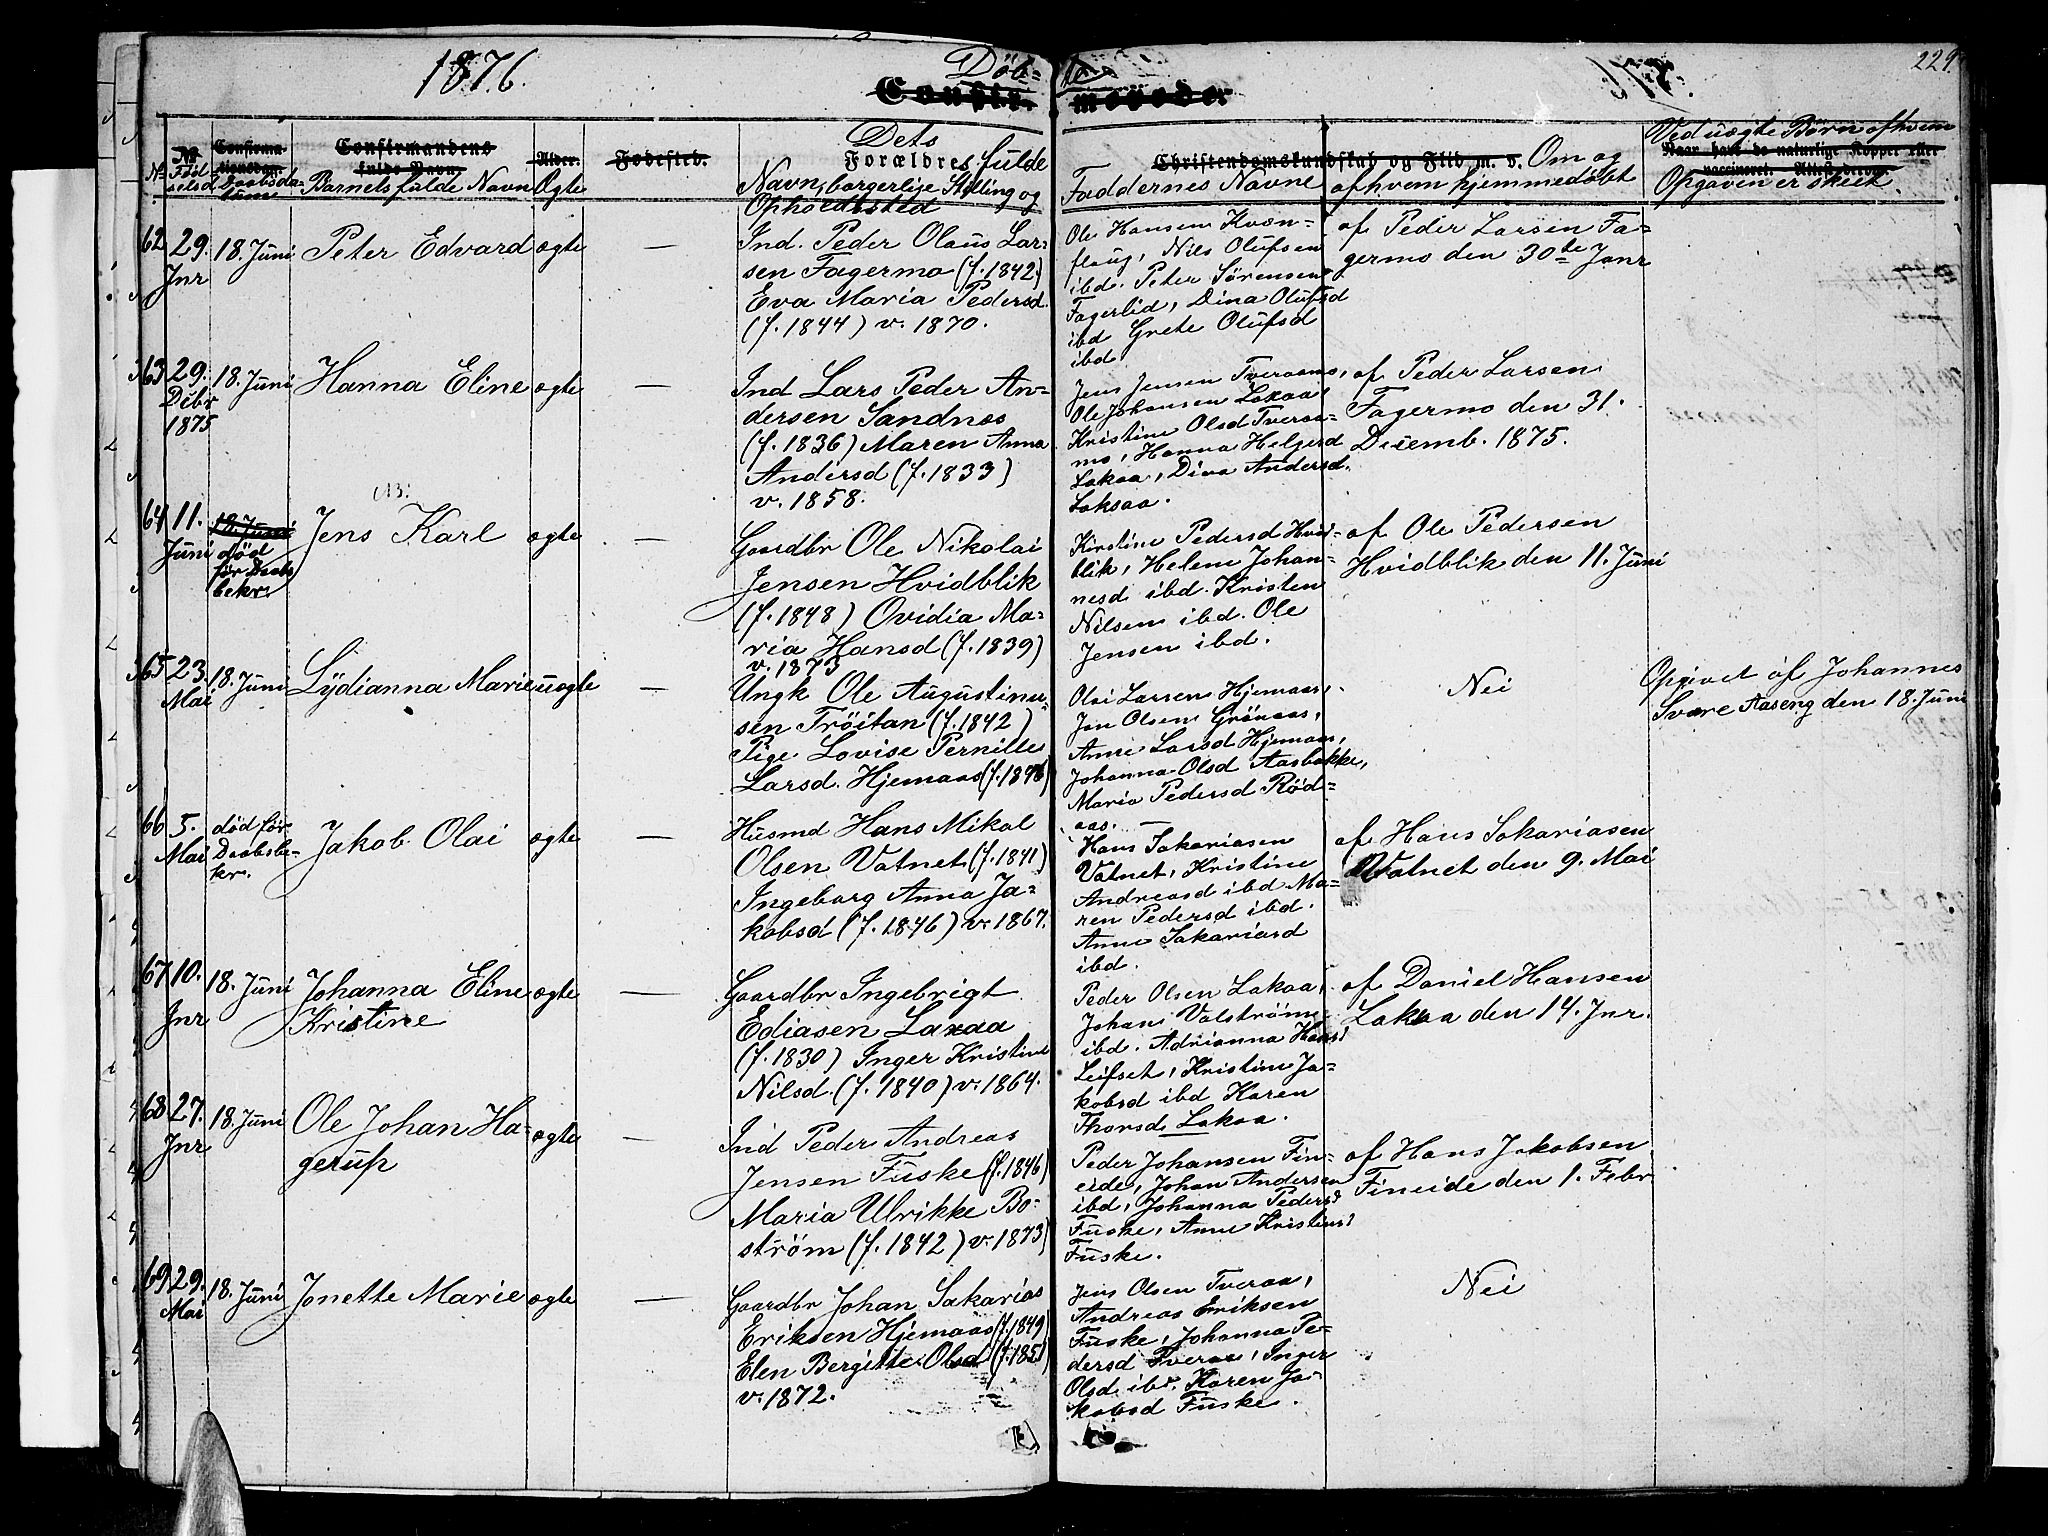 1876.
Döb-
te
229
Confir-
merede.
No
No Fød
selsd
Confirma-
tionsdag.
Daabsda-
tum
Confirmandens
fulde Navn
Barnets fulde Navn
Alder.
Ægte
Fødested.
Dets
Forældres fulde
Navn, borgerlige Stilling og
Opholdssted
Faddernes Navne
Christendomskundskab og Flid m. v.
Om og
af hvem hjemmedøbt
Ved uægte Børn af hvem
Naar havt de naturlige Kopper eller
vaccineret. Attestens
Opgaven er skeet.
62
29.
Jnr
18. Juni
Peter Edvard
ægte
—
Ind. Peder Olaus Lar-
sen Fagermo (f. 1842)
Eva Maria Pedersd.
(f. 1844) v. 1870.
Ole Hansen Kvæn-
flaug, Nils Olufsen
ibd. Peter Sörensen
Fagerlid, Dina Olufsd
ibd Grete Olufsd
ibd
af Peder Larsen Fa-
germo den 30te Janr
63
29.
Debr
1875
18. Juni
Hanna Eline
ægte
—
Ind Lars Peder An-
dersen Sandnes
(f. 1836) Maren Anna
Andersd (f. 1833)
v. 1858.
Jens Jensen Tveraamo,
Ole Johansen Laxaa,
Kristine Olsd Tveraa-
mo, Hanna Helgesd
Lakaa, Dina Andersd.
Laksaa.
af Peder Larsen
Fagermo den 31.
Decemb. 1875.
64
11.
Juni
18. Juni
död
för Daabs
bekr.
Jens Karl
ægte
—
Gaardbr Ole Nikolai
Jensen Hvidblik
(f. 1848) Ovidia Ma-
ria Hansd (f. 1839)
v. 1873
Kirstine Pedersd Hvid-
blik, Helene Johan-
nesd ibd. Kristen
Nilsen ibd. Ole
Jensen ibd.
af Ole Pedersen
Hvidblik den 11. Juni
65
23.
Mai
18. Juni
Lydianna Marie
uægte
—
Ungk Ole Augustinu-
sen Tröitan (f. 1842)
Pige Lovise Pernille
Larsd. Hjemaas
Olai Larsen Hjemaas,
Jon Olsen Grönaas,
Anne Larsd Hjemaas,
Johanna Olsd Aasbakke,
Maria Pedersd Röd-
aas. —
Nei
Opgivet af Johannes
Svare Aaseng den 18. Juni
66
5.
Mai
död før
Daabsbe-
kr.
Jakob Olai
ægte
—
Husmd Hans Mikal
Olsen Vatnet (f. 1841)
Ingeborg Anna Ja-
kobsd (f. 1846) v. 1867.
Hans Sakariasen
Vatnet, Kristine
Andreasd ibd Ma-
ren Pedersd ibd.
Anne Sakariasd
ibd.
af Hans Sakariasen
Vatnet den 9. Mai
67
10.
Jnr
18. Juni
Johanna Eline
Kristine
ægte
—
Gaardbr Ingebrigt
Ediasen Laxaa
(f. 1830) Inger Kristine
Nilsd. (f. 1840) v. 1864.
Peder Olsen Lakaa,
Johans Valström
ibd. Adrianna Hans
Leifset, Kristine Ja-
kobsd ibd Karen
Thorsd Lakaa.
af Daniel Hansen
Laksaa den 14. Jnr.
68
27.
Jnr
18. Juni
Ole Johan Ha-
gerup
ægte
—
Ind Peder Andreas
Jensen Fuske (f. 1846)
Maria Ulrikke Bo-
ström (f. 1842) v. 1873
Peder Johansen Fin-
eide, Johan Andersen
ibd, Johanna Pedersd
Fuske, Anne Kristine
Fuske.
af Hans Jakobsen
Fineide den 1. Febr
69
29.
Mai
18. Juni
Jonette Marie
ægte
—
Gaardbr Johan Sakarias
Eriksen Hjemaas (f. 1849)
Elen Bergitte Olsd
v. 1872.
Jens Olsen Tveraa,
Andreas Eriksen
Fuske, Johanna Pe-
dersd Tveraa, Inger
Olsd ibd. Karen Ja-
kobsd Fuske.
Nei